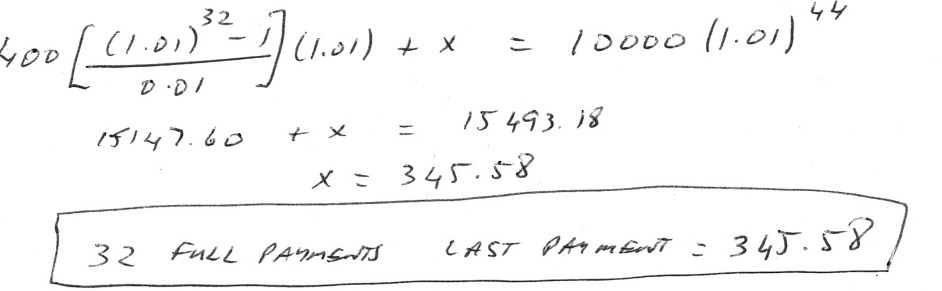 400 [ (1.01)^32 - 1 / 0.01 ] (1.01) + x = 10000 (1.01)^44
15147.60 + x = 15493.18
x = 345.58
32 FULL PAYMENTS LAST PAYMENT = 345.58